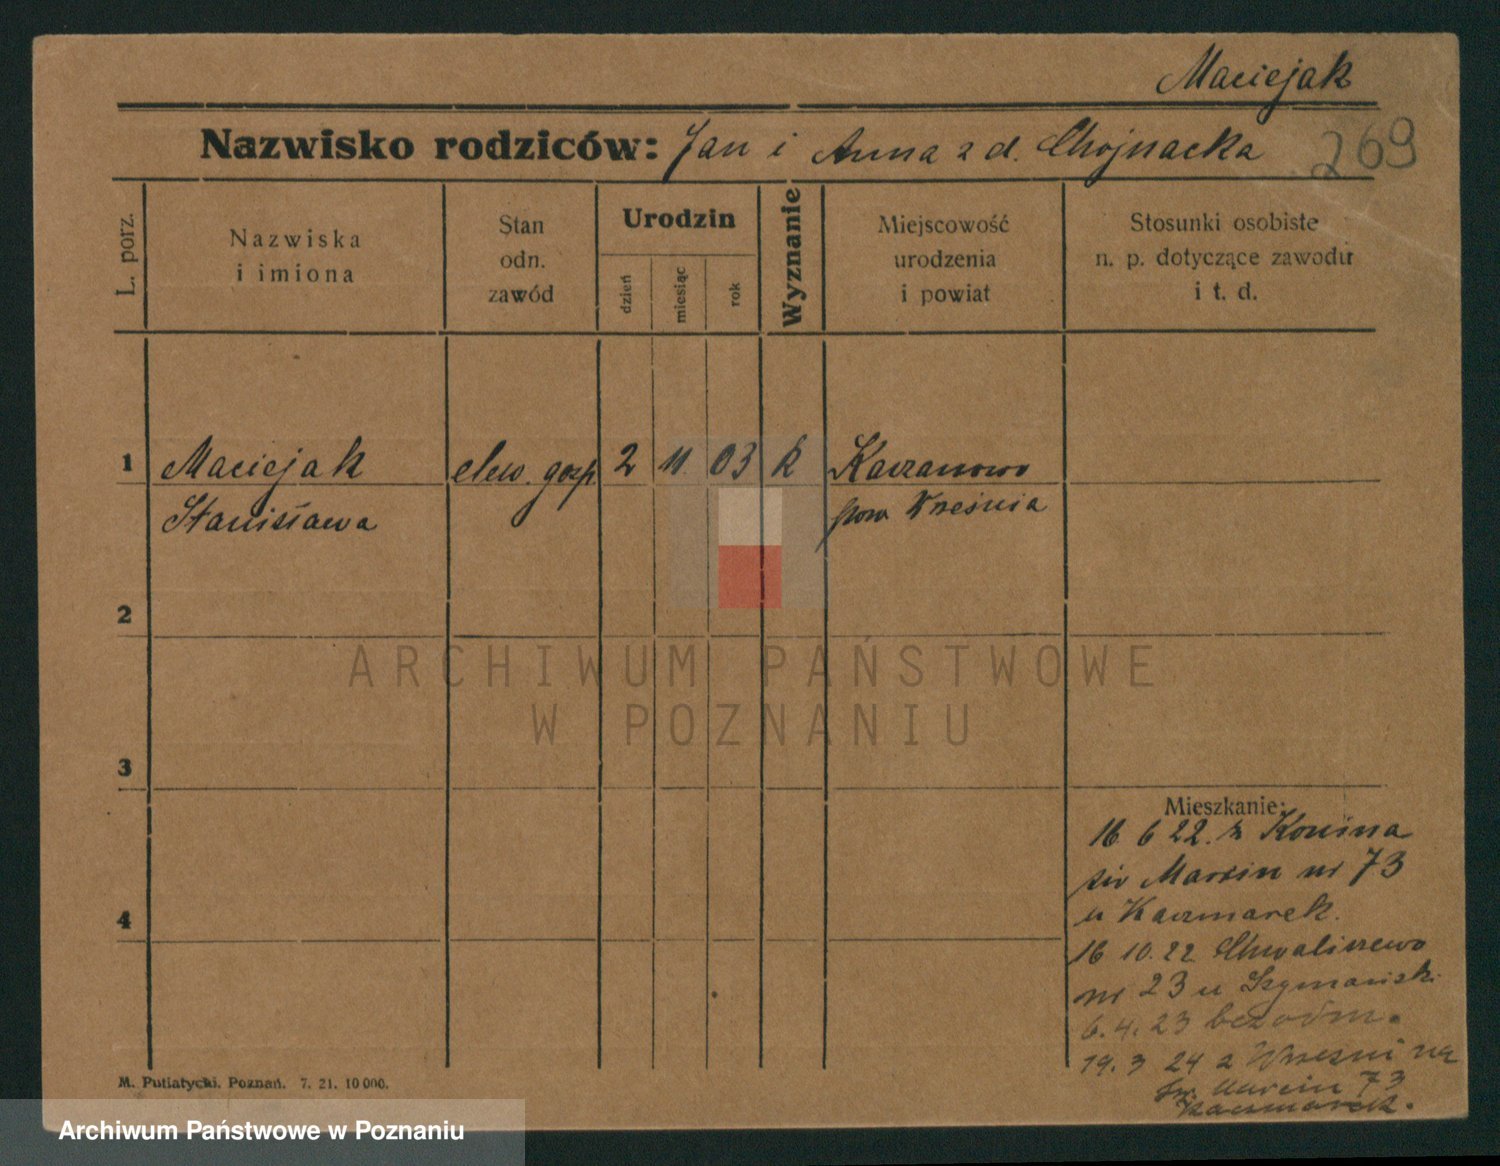 Maciejak
Nazwisko rodziców: Jan i Anna z d. Chojnacka 269
L. porz.
Nazwiska
i imiona
Stan
odn.
zawód
Urodzin
dzień
miesiąc
rok
Wyznanie
Miejscowość
urodzenia
i powiat
Stosunki osobiste
n. p. dotyczące zawodu
i t. d.
1 Maciejak elew. gosp 2 11. 03 k Kaczanowo
Stanisława pow Września
2
ARCHIWUM PAŃSTWOWE
W POZNANIU
3
Mieszkanie:
16 6 22. z Konina
św Marcin nr 73
4
u Kaczmarek.
16 10. 22 Chwaliszewo
nr 23 u Szymański
6. 4. 23 bez odm.
19. 3 24 z Wrześni na
św. Marcin 73
Kaczmarek.
M. Putiatycki. Poznań. 7. 21. 10 000.
Archiwum Państwowe w Poznaniu